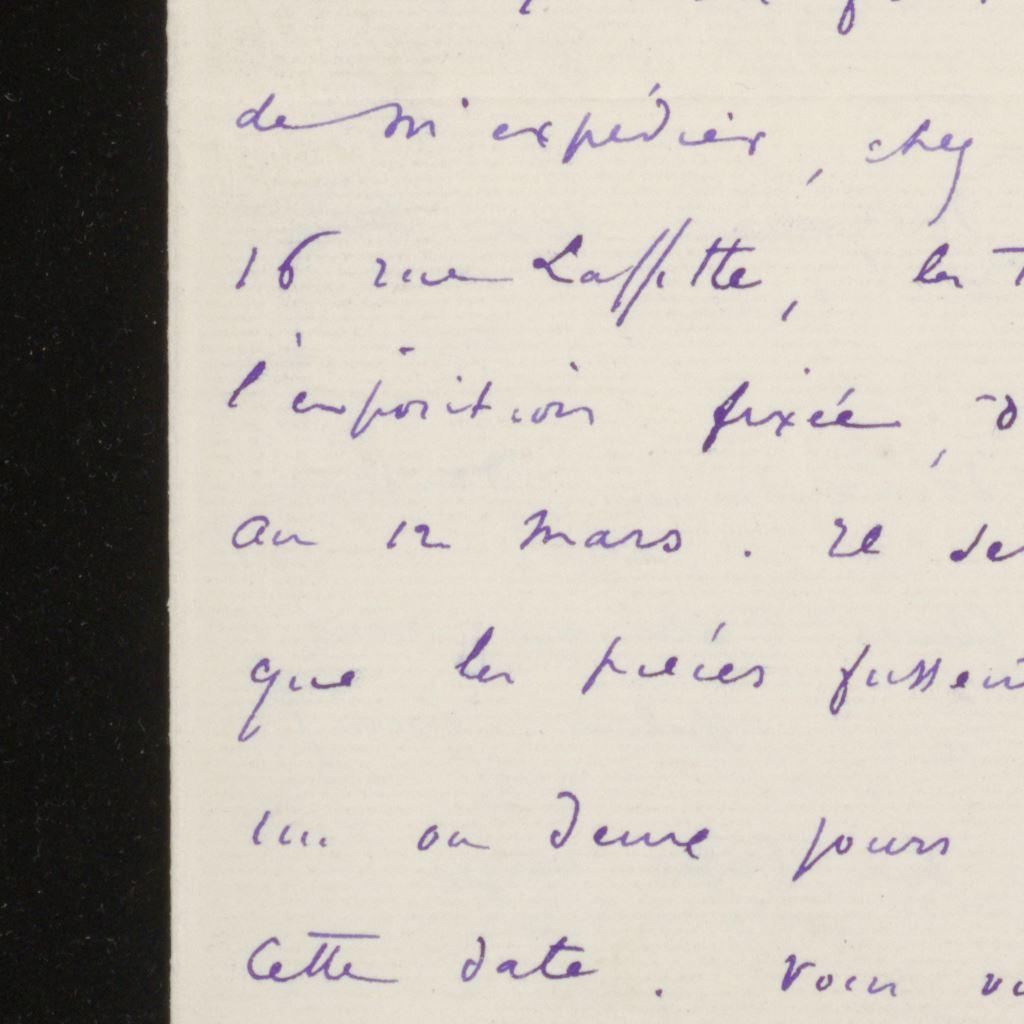 de m'expédier, chez
16 rue Laffitte, les
l'exposition fixée,
au 12 mars. Il
que les pièces fussent
un ou deux jours
cette date. Vous